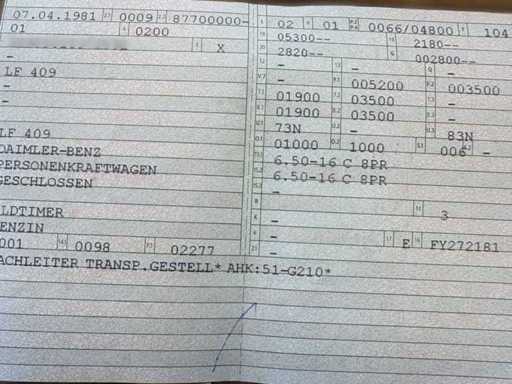 07.04.1981 0009 87700000-
01 0200
X
-
LF 409
-
-
LF 409
DAIMLER-BENZ
PERSONENKRAFTWAGEN
GESCHLOSSEN
LDTIMER
ENZIN
001 0098 02277
ACHLEITER TRANSP.GESTELL* AHK:51-G210*
02 01 0066/04800 104
05300-- 2180--
2820-- 002800--
- - -
- 005200 003500
01900 03500 -
01900 03500 -
73N - 83N
01000 1000 006 -
6.50-16 C 8PR
6.50-16 C 8PR
-
3
-
- E FY272181
-